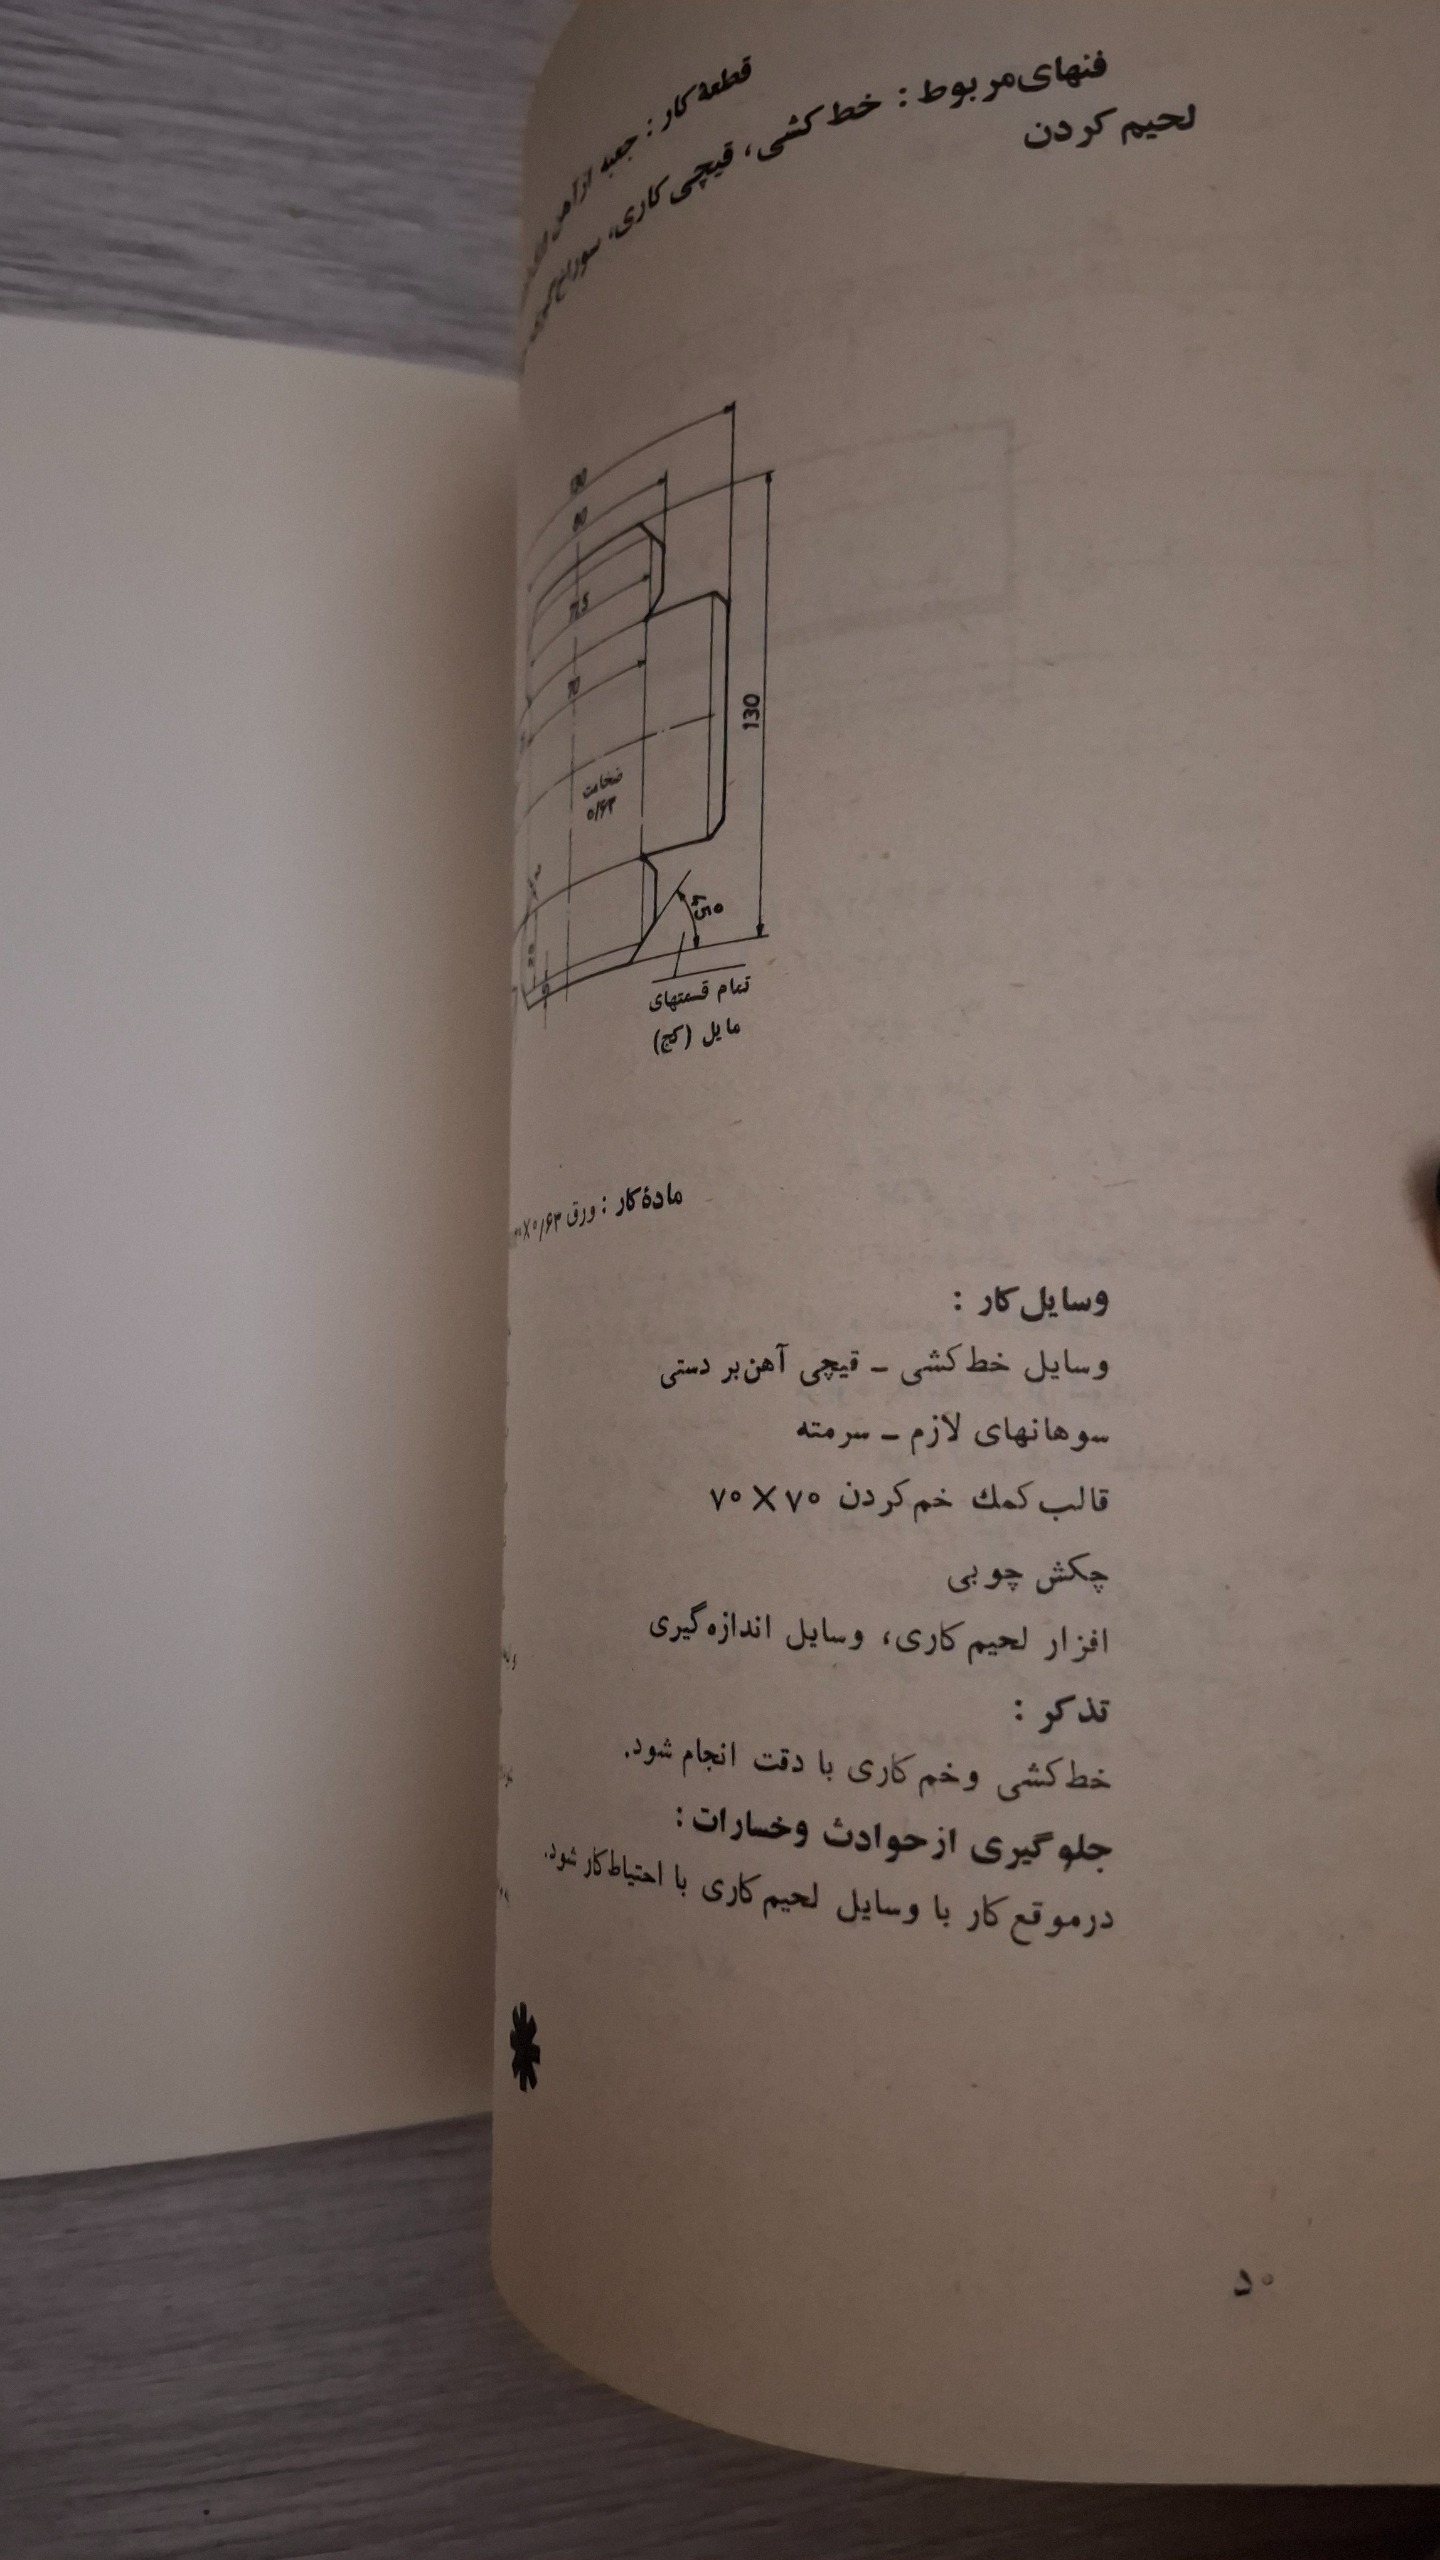 قطعهٔ کار : جعبه از آهن
فنهای مربوط : خط کشی، قیچی کاری، سوراخ
لحیم کردن
130
80
71,5
70
130
ضخامت
۰/۶۳
45°
تمام قسمتهای
مایل (کج)
مادهٔ کار : ورق ۰/۶۳×
وسایل کار :
وسایل خط کشی – قیچی آهن بر دستی
سوهانهای لازم – سرمته
قالب کمك خم کردن ۷۰ × ۷۰
چکش چوبی
افزار لحیم کاری، وسایل اندازه گیری
تذکر :
خط کشی و خم کاری با دقت انجام شود.
جلوگیری از حوادث و خسارات :
در موقع کار با وسایل لحیم کاری با احتیاط کار شود.